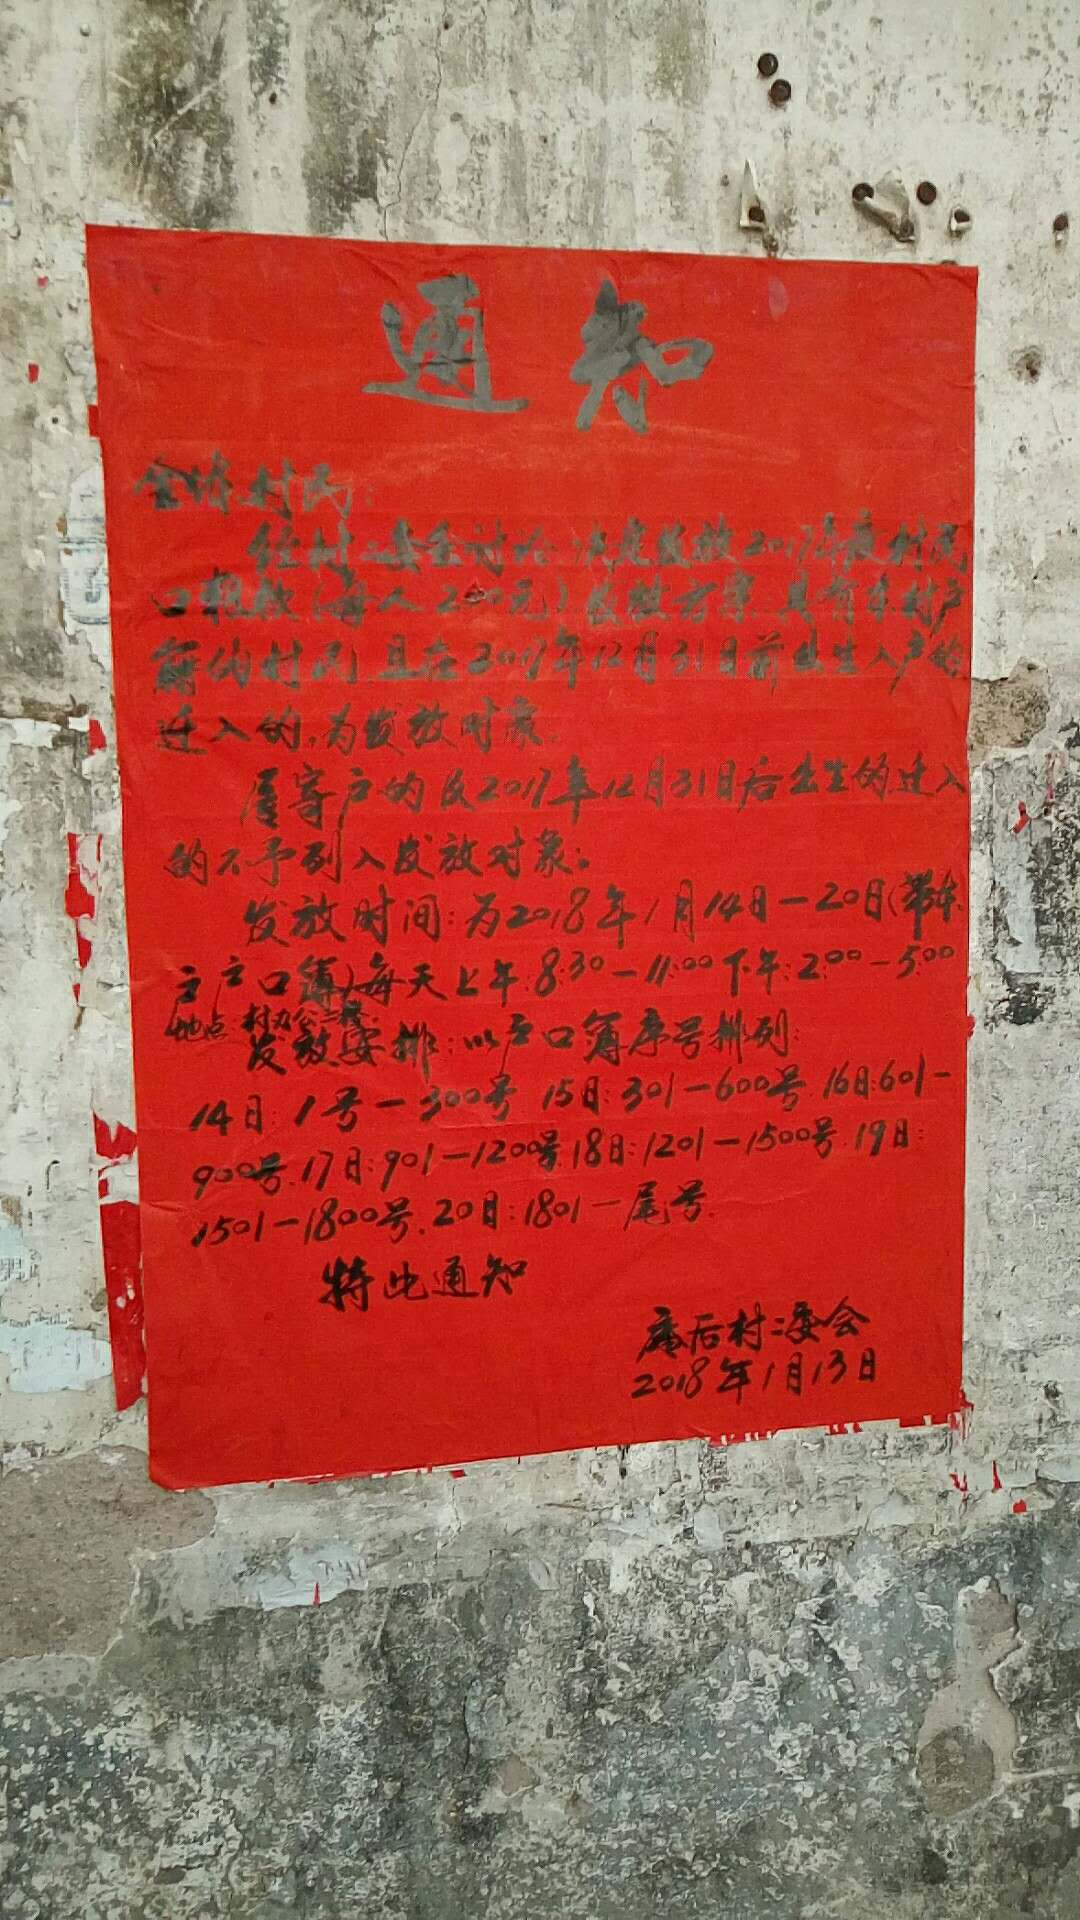 通知
全体村民:
经村二委会讨论,决定发放2017年度村民
口粮款(每人200元)发放方案,具有本村户
籍的村民,且在2017年12月31日前出生入户的
迁入的,为发放对象.
居寄户的及2017年12月31日后出生的迁入
的不予列入发放对象;
发放时间:为2018年1月14日-20日(带本
户户口簿)每天上午:8:30-11:00下午:2:00-5:00
地点:村办公二楼.
发放安排:以户口簿序号排列:
14日:1号-300号.15日:301-600号.16日:601-
900号.17日:901-1200号.18日:1201-1500号.19日:
1501-1800号.20日:1801-尾号.
特此通知
后村二委会
2018年1月13日